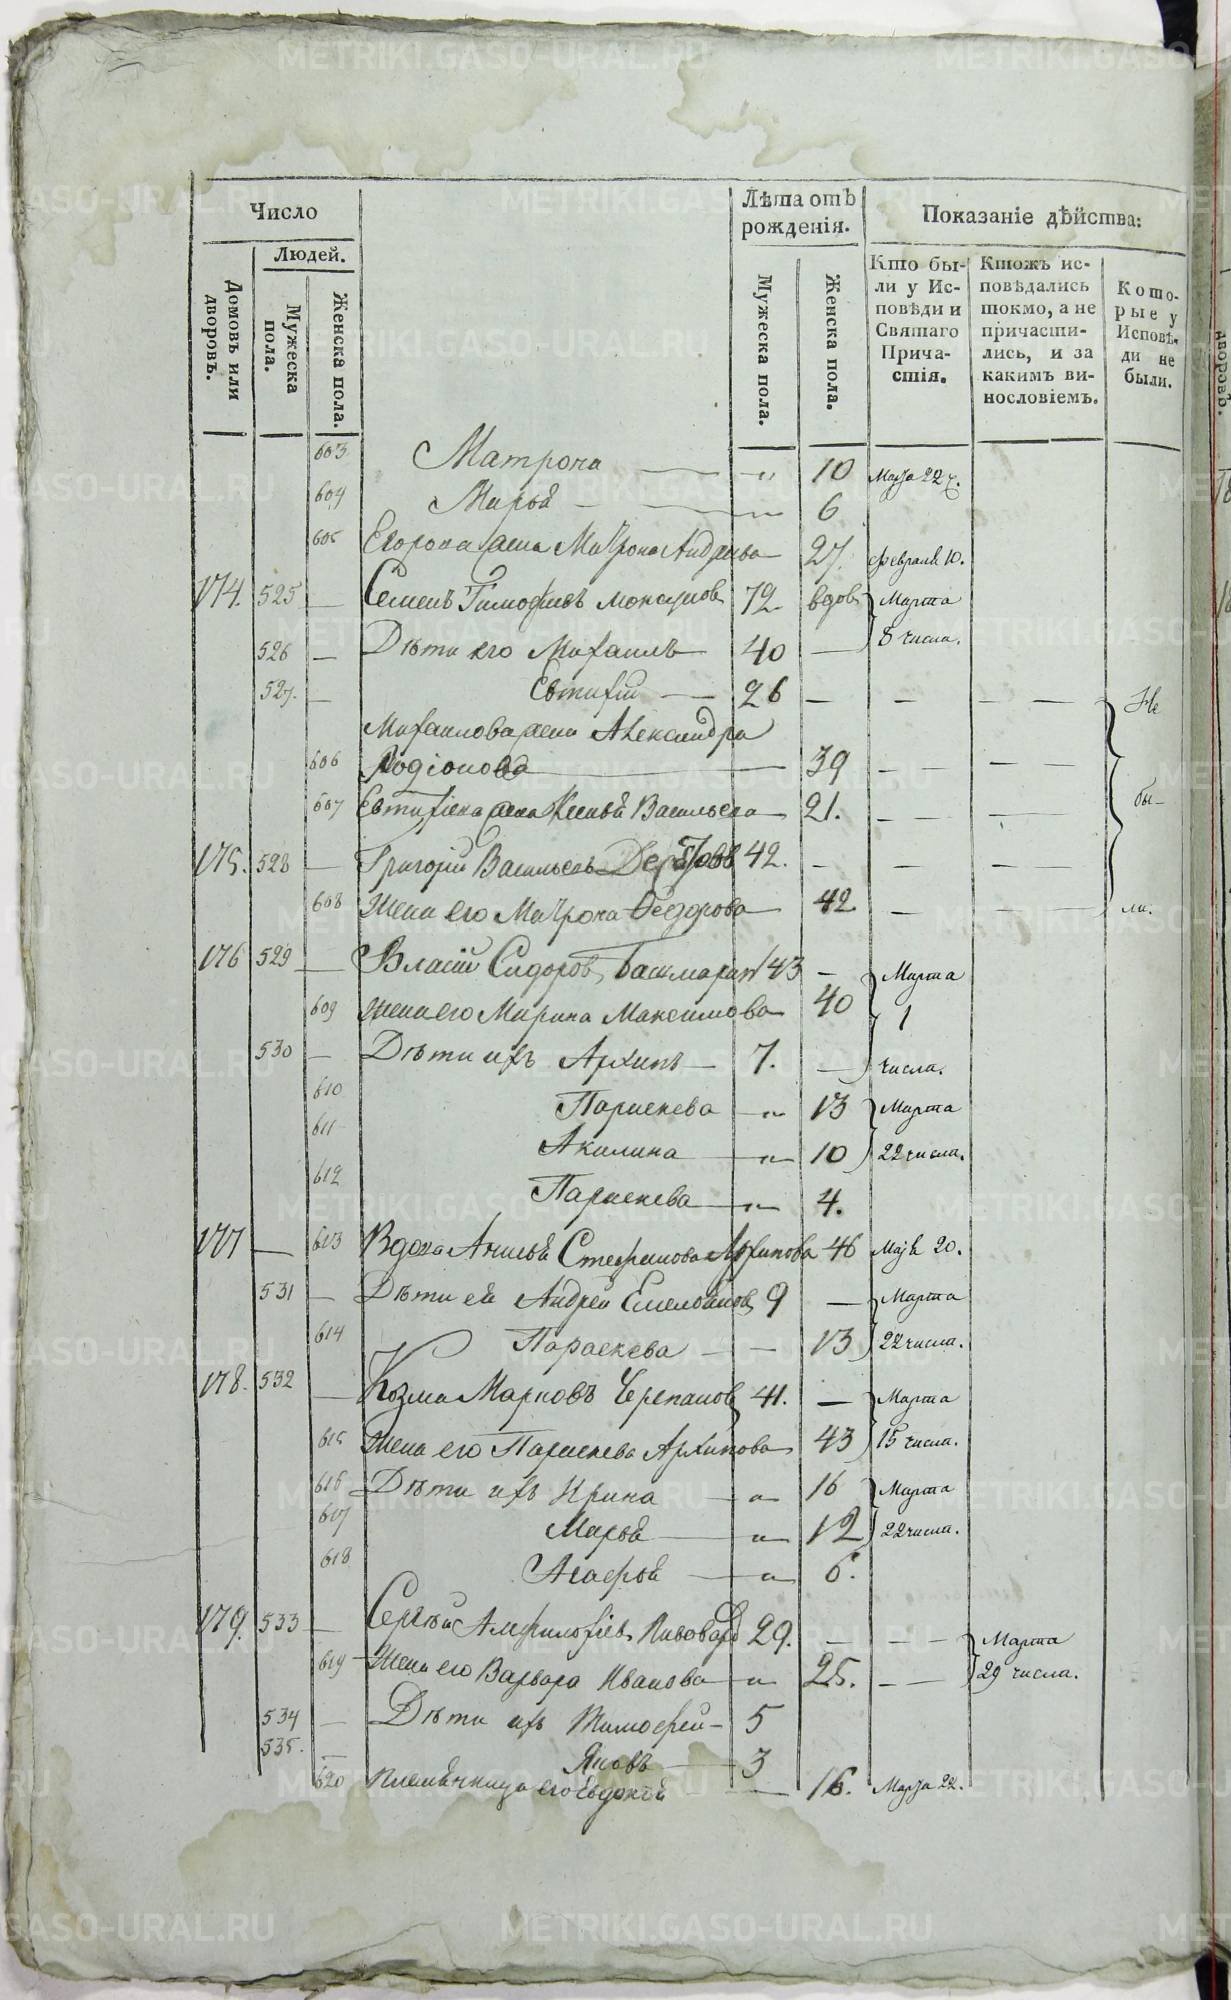 Число
Людей.
Домовъ или дворовъ.
Мужеска пола.
Женска пола.
Лѣта отъ рожденія.
Мужеска пола.
Женска пола.
Показаніе дѣйства:
Кто бы-
ли у Ис-
повѣди и
Святаго
Прича-
стія.
Ктожъ ис-
повѣдались
токмо, а не
причасти-
лись, и за
какимъ ви-
нословіемъ.
Кото-
рые у
Исповѣ-
ди не
были.
603 Матрона — " 10 Марта 22 ч.
604 Марья — 6
605 Егорова жена Матрона Андреева 27. Февраля 10.
174. 525 — Семенъ Тимофеевъ 72 вдовъ Марта
526 — Дѣти его Михаилъ 40 — 8 числа.
527. — Евтифій — 26 — — — — Не
Михаилова жена Александра
606 Родіонова — 39 — — — —
607 Евтифіева жена Ксенья Васильева 21. — — — — бы-
175. 528 — Григорій Васильевъ 42. — — —
608 Жена его Матрона Федорова 42 — — ли.
176 529 — Власій Сидоровъ Башмаринъ 43 — Марта
609 Жена его Марина Максимова 40 1
530 — Дѣти ихъ Архипъ — 7. — числа.
610 Параскева — " 13 Марта
611 Акилина — " 10 22 числа.
612 Параскева — " 4.
177 — 613 Вдова Анисья Стефанова Архипова 46 Мая 20.
531 — Дѣти ея Андрей Емельяновъ 9 — Марта
614 Параскева — — 13 22 числа.
178. 532 — Козма Марковъ Черепановъ 41. — Марта
615 Жена его Параскева Архипова 43 15 числа.
616 Дѣти ихъ Ирина — " 16 Марта
617 Марья — " 12 22 числа.
618 Агафья — " 6.
179. 533 — Сергѣй Амфилофіевъ Пивоваровъ 29. — — — Марта
619 Жена его Варвара Иванова — " 25. — — 29 числа.
534 — Дѣти ихъ Тимофей — 5
535. — Яковъ — 3
620 племянница его Евдокія — 16. Марта 22.
METRIKI.GASO-URAL.RU